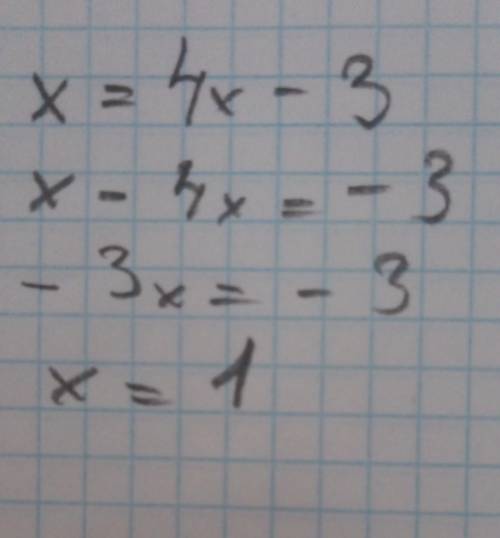 x = 4x - 3
x - 4x = - 3
- 3x = - 3
x = 1